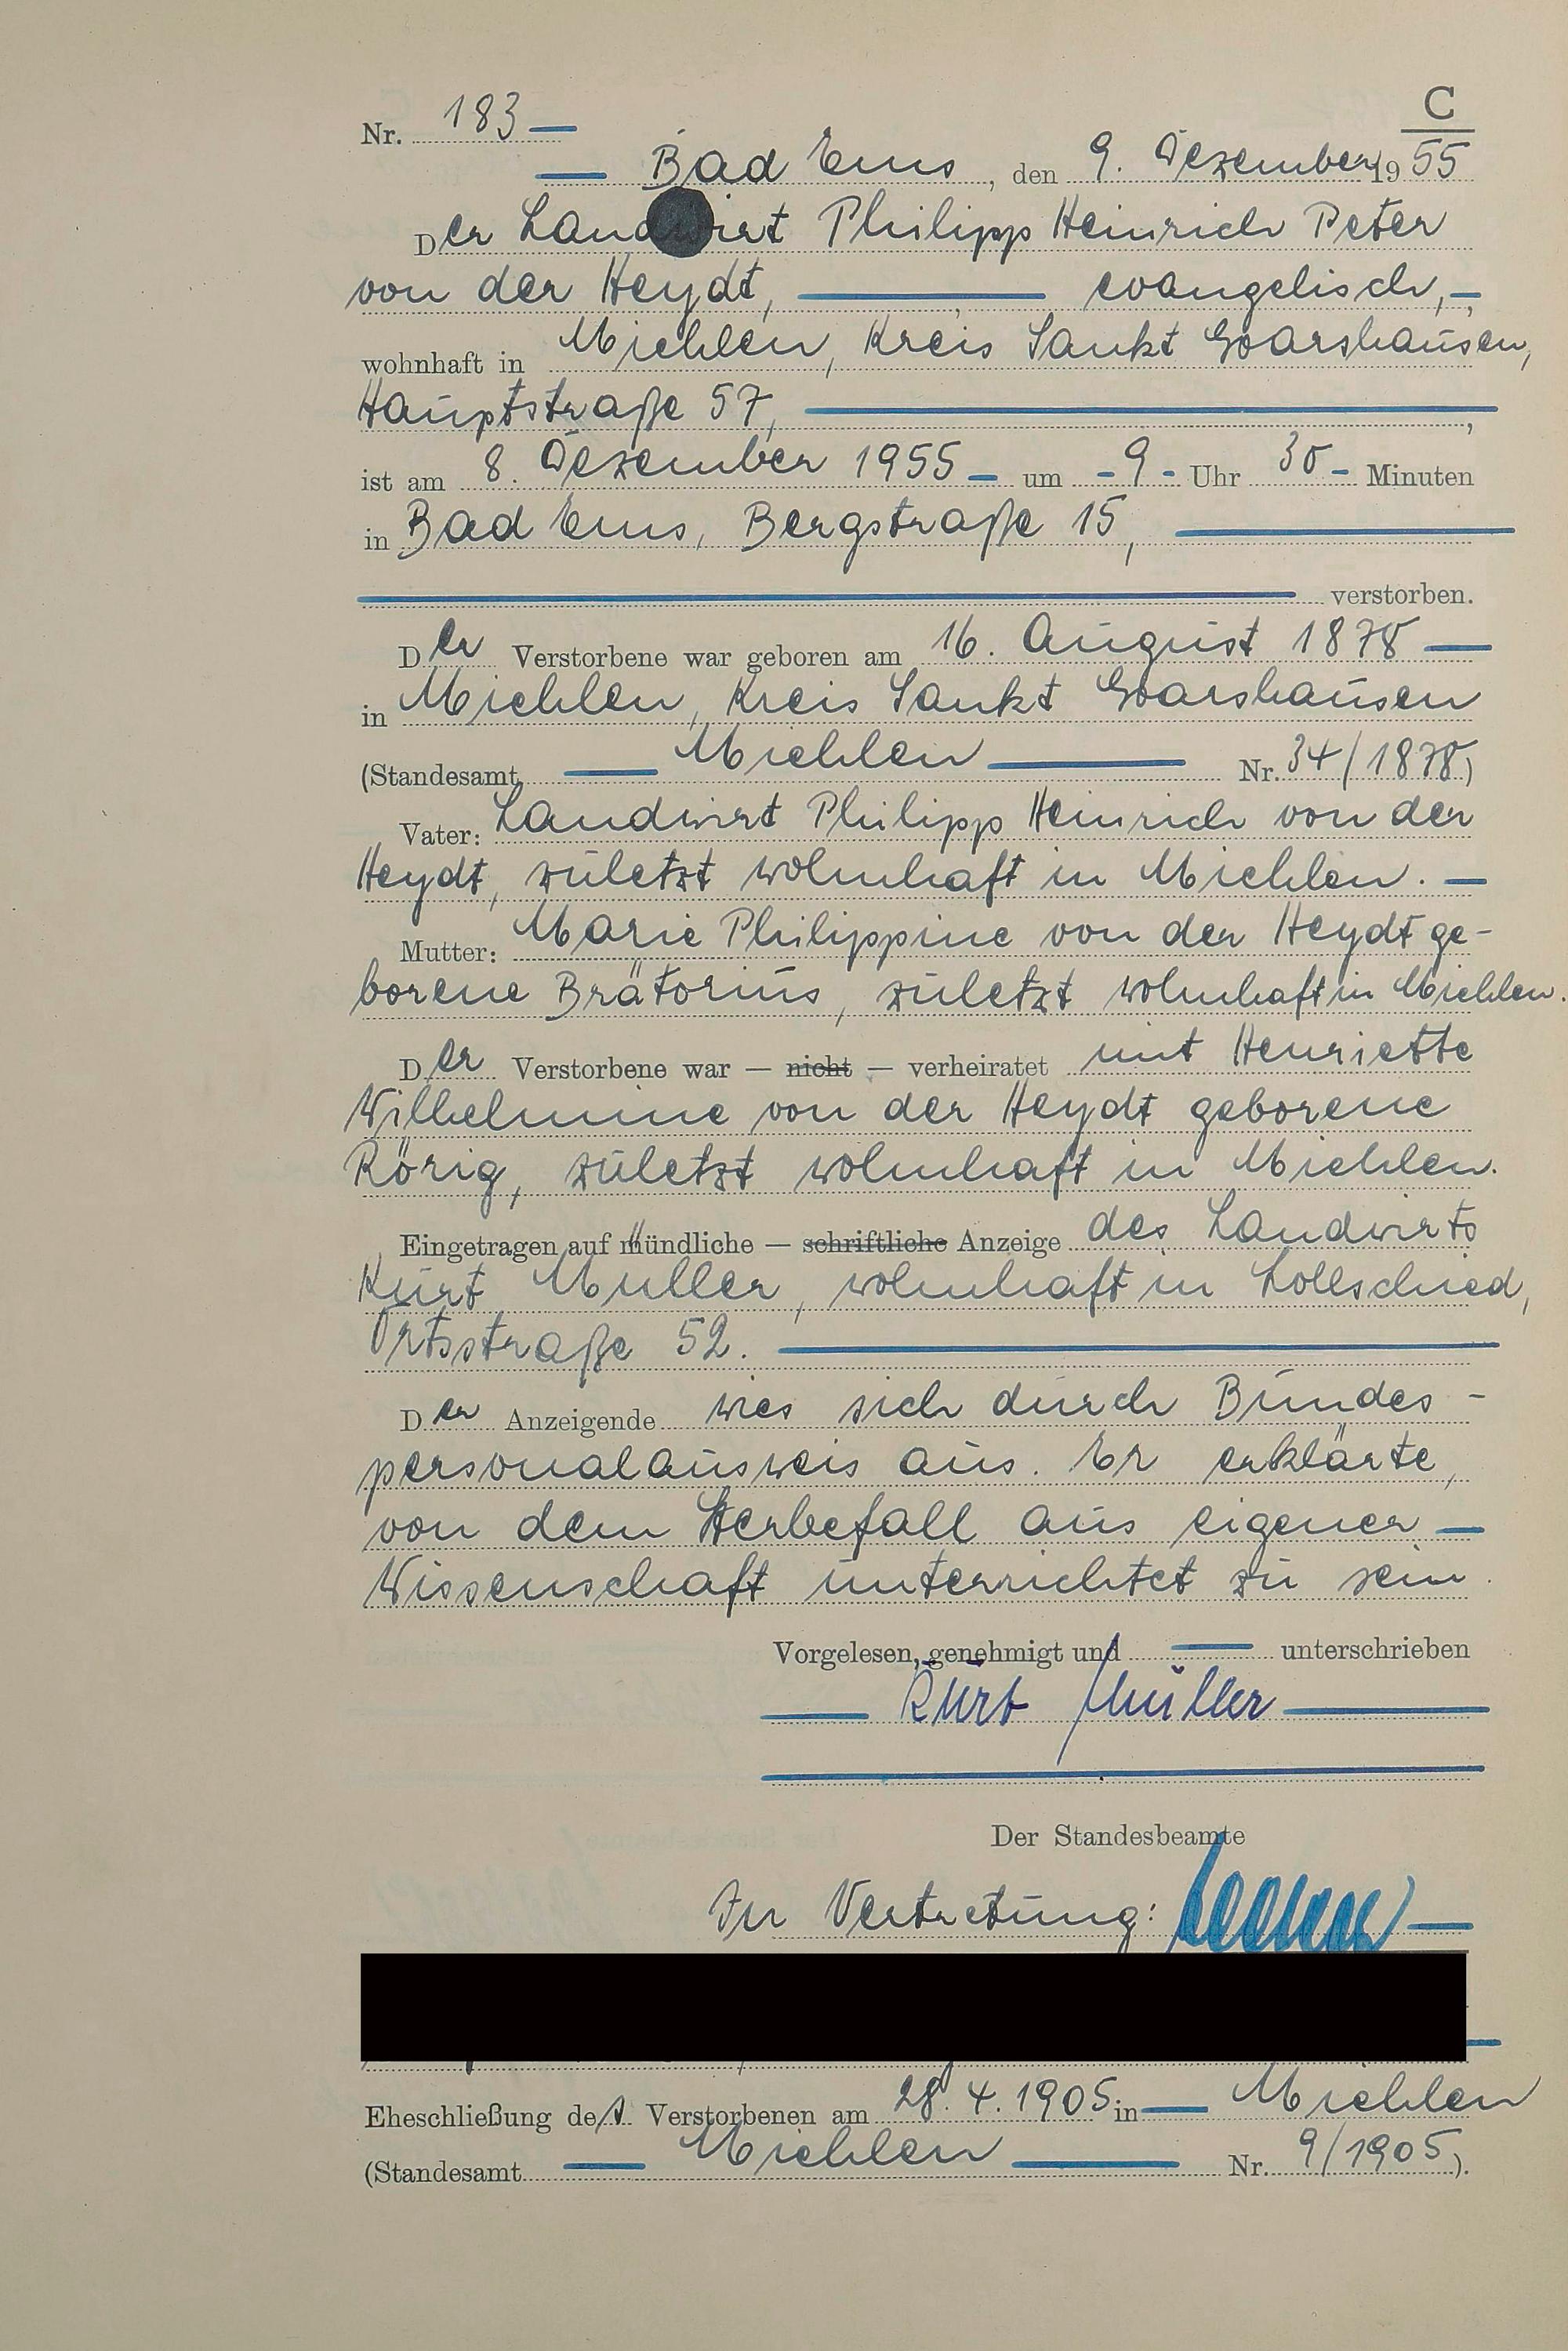 C
Nr. 183
Bad Ems, den 9. Dezember 1955
Der Landwirt Philipp Heinrich Peter
von der Heydt, evangelisch,
wohnhaft in Miehlen, Kreis Sankt Goarshausen,
Hauptstraße 57,
ist am 8. Dezember 1955 um -9- Uhr 30 Minuten
in Bad Ems, Bergstraße 15,
verstorben.
Der Verstorbene war geboren am 16. August 1878
in Miehlen, Kreis Sankt Goarshausen
(Standesamt Miehlen Nr. 34/1878)
Vater: Landwirt Philipp Heinrich von der
Heydt, zuletzt wohnhaft in Miehlen.
Mutter: Marie Philippine von der Heydt ge-
borene Brätorius, zuletzt wohnhaft in Miehlen.
Der Verstorbene war — nicht — verheiratet mit Henriette
Wilhelmine von der Heydt geborene
Rörig, zuletzt wohnhaft in Miehlen.
Eingetragen auf mündliche — schriftliche Anzeige des Landwirts
Kurt Müller, wohnhaft in Lollschied,
Ortsstraße 52.
Der Anzeigende wies sich durch Bundes-
personalausweis aus. Er erklärte,
von dem Sterbefall aus eigener
Wissenschaft unterrichtet zu sein.
Vorgelesen, genehmigt und unterschrieben
Kurt Müller
Der Standesbeamte
In Vertretung:
Eheschließung des Verstorbenen am 28.4.1905 in Miehlen
(Standesamt Miehlen Nr. 9/1905).